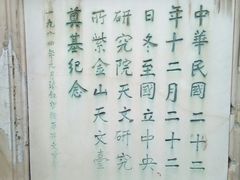 中華民國二十二
年十二月二十二
日冬至國立中央
研究院天文研究
所紫金山天文臺
奠基紀念
一九八四年